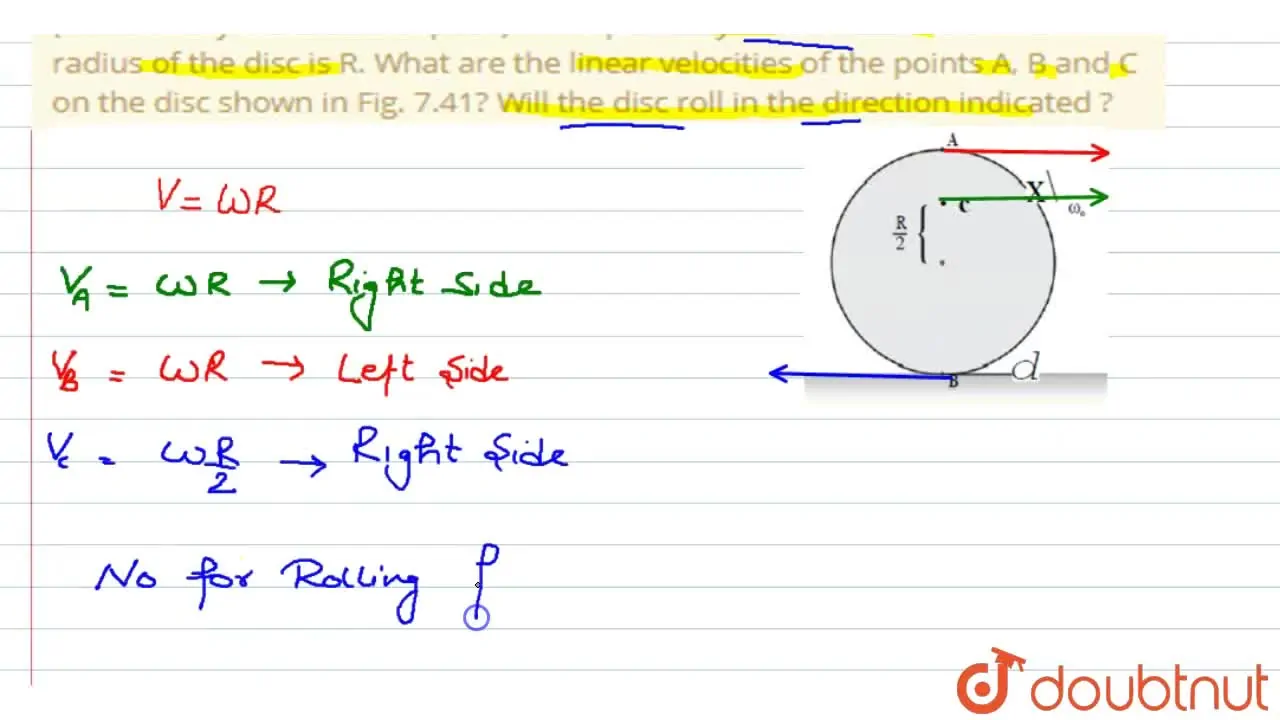 radius of the disc is R. What are the linear velocities of the points A, B and C
on the disc shown in Fig. 7.41? Will the disc roll in the direction indicated ?
A
X
C
ω₀
R/2
B
d
V = ωR
V_A = ωR → Right Side
V_B = ωR → Left Side
V_c = ωR/2 → Right Side
No for Rolling f
doubtnut